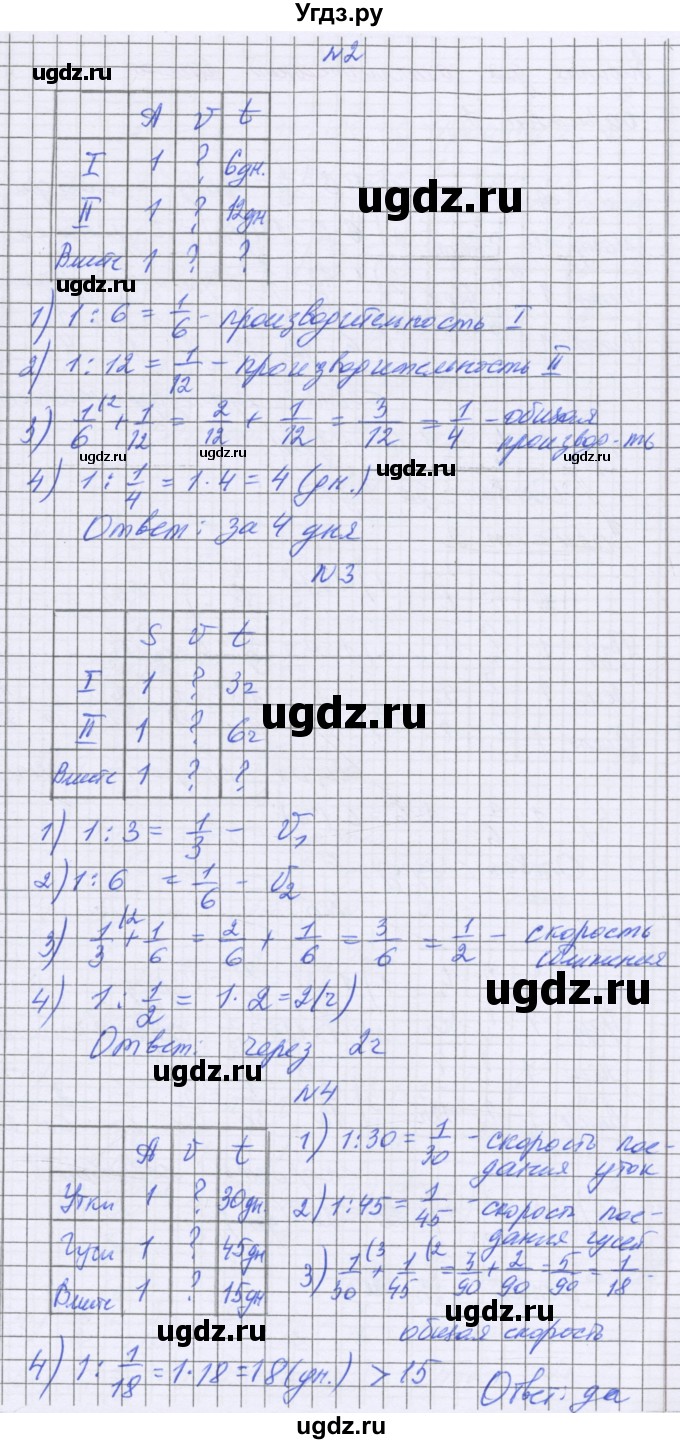 Угдз.ру
№2
ugdz.ru
A v t
I 1 ? 6дн.
II 1 ? 12дн
ugdz.ru
Вместе 1 ? ?
ugdz.ru
1) 1 : 6 = 1/6 - производительность I
2) 1 : 12 = 1/12 - производительность II
3) 1/6 (2 + 1/12 = 2/12 + 1/12 = 3/12 = 1/4 - общая
производ-ть
ugdz.ru ugdz.ru ugdz.ru
4) 1 : 1/4 = 1 · 4 = 4 (дн.)
Ответ: за 4 дня
№3
S v t
I 1 ? 3ч
ugdz.ru ugdz.ru
II 1 ? 6ч
Вместе 1 ? ?
1) 1 : 3 = 1/3 - v1
2) 1 : 6 = 1/6 - v2
3) 1/3 (2 + 1/6 = 2/6 + 1/6 = 3/6 = 1/2 - скорость
сближения
ugdz.ru
4) 1 : 1/2 = 1 · 2 = 2 (ч)
Ответ: через 2ч
ugdz.ru
№4
A v t
Утки 1 ? 30дн.
Гуси 1 ? 45дн
Вместе 1 ? 15дн
1) 1 : 30 = 1/30 - скорость пое-
дания уток
2) 1 : 45 = 1/45 - скорость пое-
дания гусей
ugdz.ru ugdz.ru
3) 1/30 (3 + 1/45 (2 = 3/90 + 2/90 = 5/90 = 1/18 -
общая скорость
ugdz.ru
4) 1 : 1/18 = 1 · 18 = 18 (дн.) > 15
Ответ: да
ugdz.ru